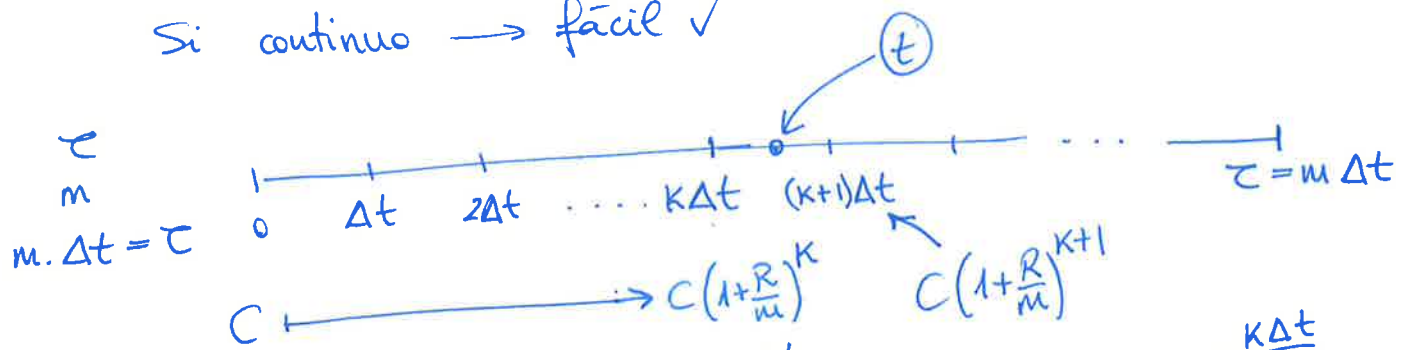 Si continuo → fácil ✓
t
τ
m
m.Δt = τ
0 Δt 2Δt .... KΔt (K+1)Δt .... τ = m Δt
C → C(1+R/m)^K C(1+R/m)^{K+1}
KΔt